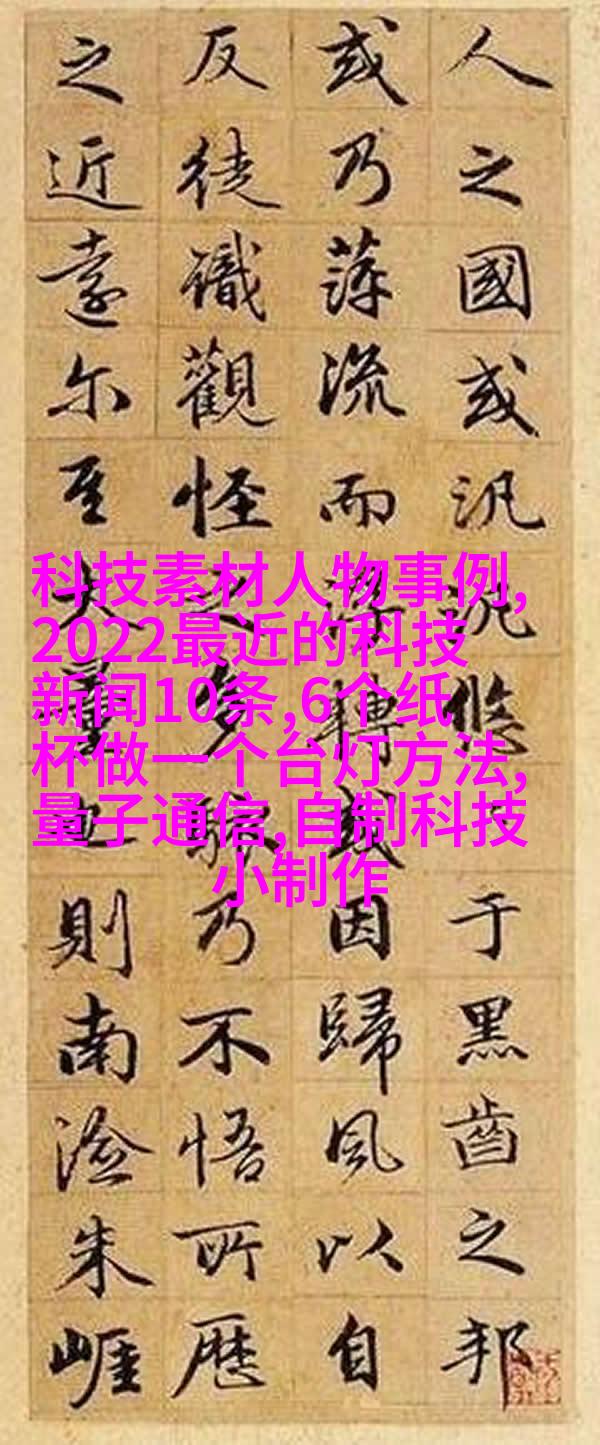 人之國或汎汎悠于黑齒之邦
或乃萍流而浮轉或因歸風以自
反徒識觀怪之多駭乃不悟所歷
之近遠尔至大量也則南澰朱崕
科技素材人物事例,
2022最近的科技
新闻10条,6个纸
杯做一个台灯方法,
量子通信,自制科技
小制作